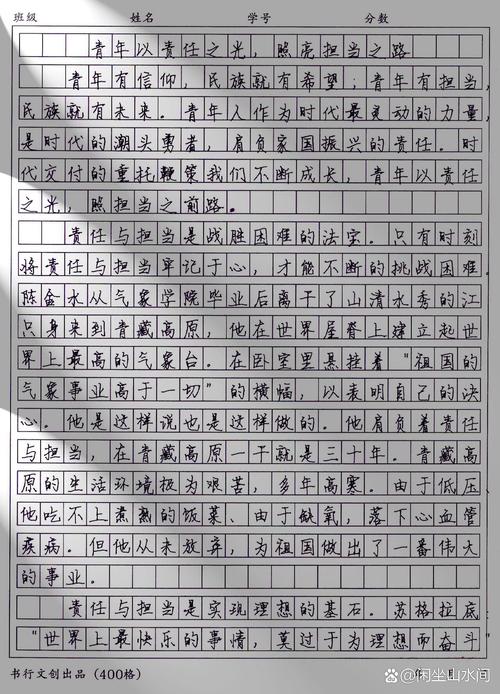 班级 姓名 学号 分数
青年以责任之光，照亮担当之路
青年有信仰，民族就有希望；青年有担当，
民族就有未来．青年人作为时代最灵动的力量，
是时代的潮头勇者，肩负家国振兴的责任．时
代交付的重托鞭策我们不断成长，青年以责任
之光，照担当之前路．
责任与担当是战胜困难的法宝．只有时刻
将责任与担当牢记于心，才能不断的挑战困难．
陈金水从气象学院毕业后离开了山清水秀的江
只身来到青藏高原，他在世界屋脊上建立起世
界上最高的气象台．在卧室里悬挂着“祖国的
气象事业高于一切”的横幅，以表明自己的决
心．他是这样说也是这样做的．他肩负着责任
与担当，在青藏高原一干就是三十年．青藏高
原的生活环境极为艰苦，多年高寒．由于低压、
他吃不上煮熟的饭菜、由于缺氧，落下心血管
疾病．但他从未放弃，为祖国做出了一番伟大
的事业．
责任与担当是实现理想的基石．苏格拉底：
“世界上最快乐的事情，莫过于为理想而奋斗”
书行文创出品（400格） 年 月 日
@闲坐山水间